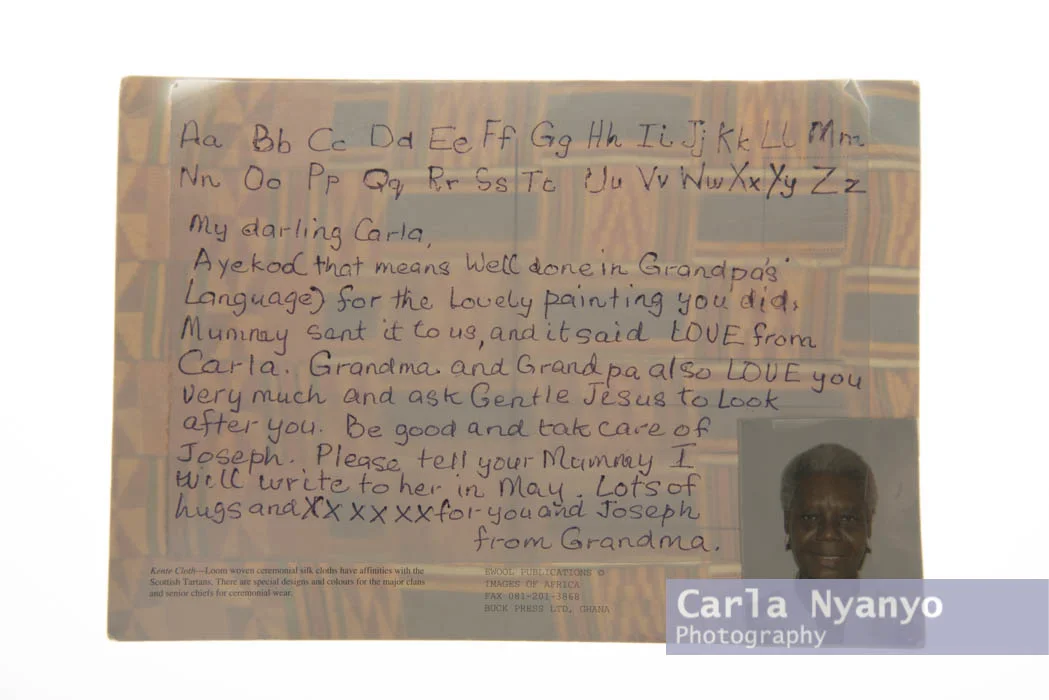 Aa Bb Cc Dd Ee Ff Gg Hh Ii Jj Kk Ll Mm
Nn Oo Pp Qq Rr Ss Tt Uu Vv Ww Xx Yy Zz
My darling Carla,
Ayekoo (that means Well done in Grandpa's
Language) for the lovely painting you did.
Mummy sent it to us, and it said LOVE from
Carla. Grandma and Grandpa also LOVE you
very much and ask Gentle Jesus to Look
after you. Be good and tak care of
Joseph. Please tell your Mummy I
will write to her in May. Lots of
hugs and XXXXXX for you and Joseph
from Grandma.
Kente Cloth—Loom woven ceremonial silk cloths have affinities with the
Scottish Tartans. There are special designs and colours for the major clans
and senior chiefs for ceremonial wear.
EWOOL PUBLICATIONS ©
IMAGES OF AFRICA
FAX 081-201-3868
BUCK PRESS LTD, GHANA
Carla Nyanyo
Photography